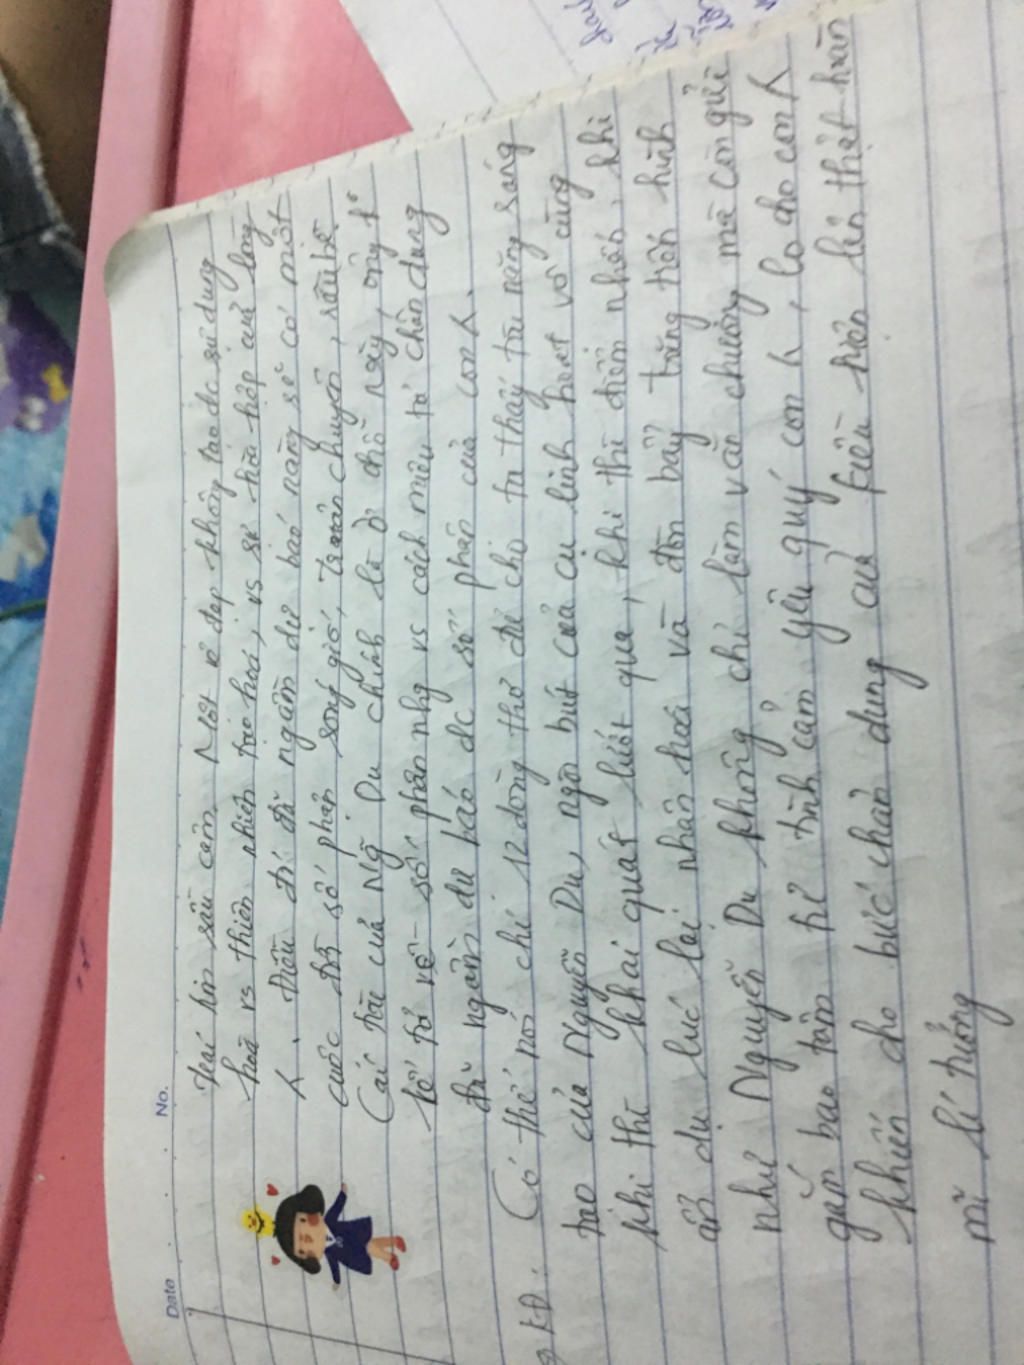 Date No.
trái tim sầu cảm. Một vẻ đẹp không tạo đc sự dung
hoà vs thiên nhiên tạo hoá, vs sự hoà hợp của lòng
λ. Điều đó đã ngầm dự báo nàng sẽ có một
cuộc số phận sóng gió, chuyên, sầu bi.
Cái tài của Ng~ Du chính là ở chỗ này, ông k°
kể tả về số phận nhg vs cách miêu tả chân dung
đã ngầm dự báo đc số phận của con λ.
KĐ: Có thể nói chỉ 12 dòng thơ đủ cho ta thấy tài năng sáng
tạo của Nguyễn Du, ngòi bút của cụ linh hoạt vô cùng
khi thì khái quát lướt qua, khi thì điểm nhấn, khi
ẩn dụ lúc lại nhân hoá và đòn bẩy trăng trốn hình
như Nguyễn Du không chỉ làm văn chương mà còn gửi
gắm bao tâm tư tình cảm yêu quý con λ, lo cho con λ
khiến cho bức chân dung của Kiều hiện lên thật hoàn
mĩ lí tưởng